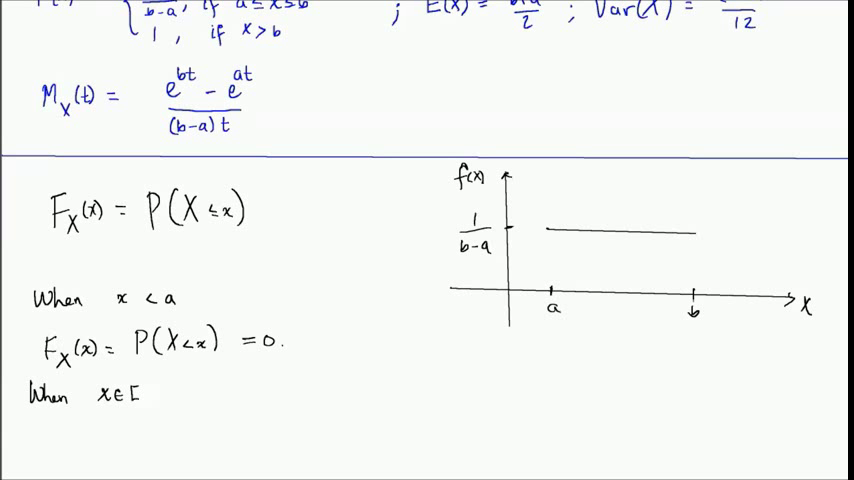 b-a, if a≤x≤b
1, if x>b
; E(X) =
2
; Var(X) =
12
M_X(t) = e^{bt} - e^{at}
(b-a)t
F_X(x) = P(X ≤ x)
When x < a
F_X(x) = P(X < x) = 0.
When x ∈ [
f(x)
1
b-a
a
b
X